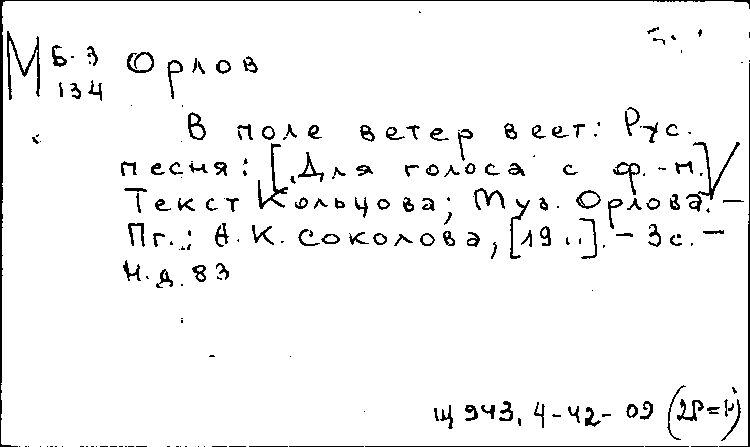 М Б-3 Орлов
134
В поле ветер веет: Рус.
песня: [Для голоса с ф.-п.]
Текст Кольцова; Муз. Орлова. -
Пг.: А. К. Соколова, [19..]. - 3 с. -
Н.д. 83
Щ 943, 4-42-09 (2Р=Р)